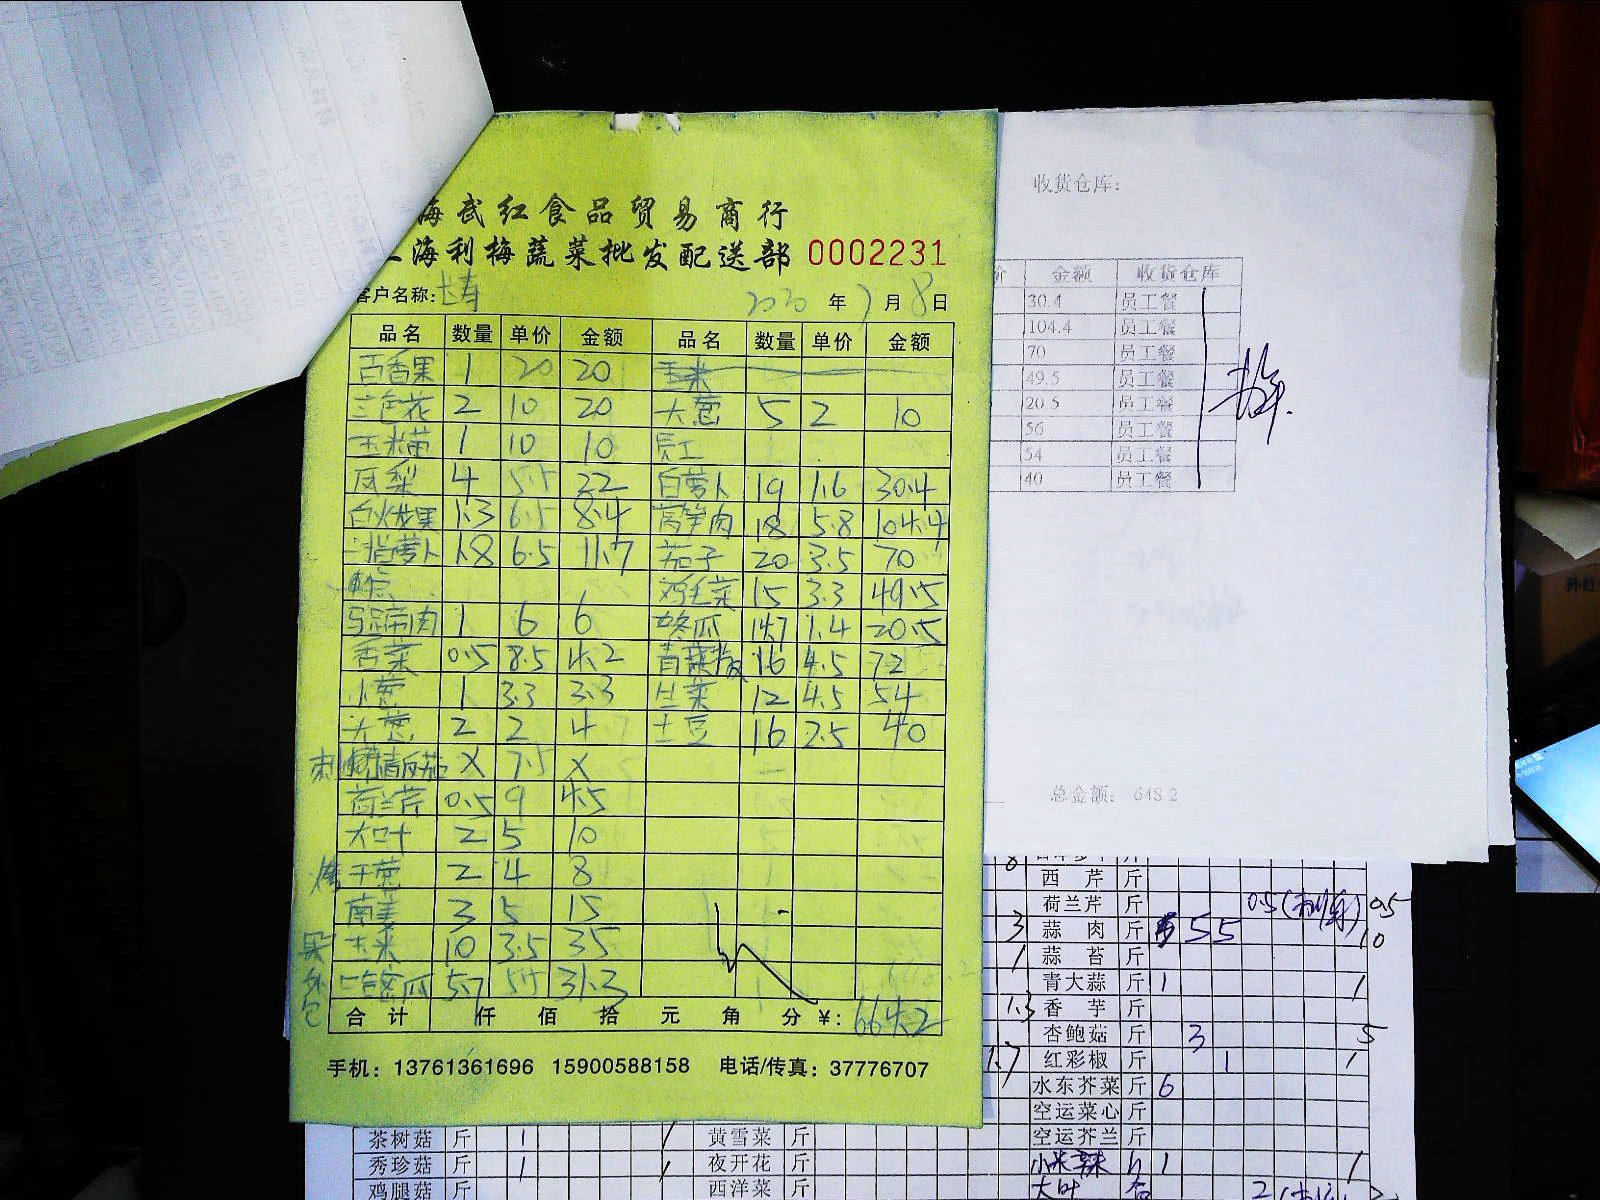 海武红食品贸易商行
上海利梅蔬菜批发配送部 0002231
客户名称: 2020 年 7 月 8 日
品名 数量 单价 金额 品名 数量 单价 金额
百香果 1 20 20 玉米
三色花 2 10 20 大葱 5 2 10
玉米苗 1 10 10 员工
凤梨 4 5.5 22 白萝卜 19 1.6 30.4
白火龙果 1.3 6.5 8.4 莴笋肉 18 5.8 104.4
萝卜 1.8 6.5 11.7 茄子 20 3.5 70
鸡毛菜 15 3.3 49.5
马蹄肉 1 6 6 冬瓜 14.7 1.4 20.5
香菜 0.5 8.5 4.2 青菜 16 4.5 72
小葱 1 3.3 3.3 生菜 12 4.5 54
大葱 2 2 4 土豆 16 2.5 40
番茄 X 7.5 X
荷兰芹 0.5 9 4.5
大叶 2 5 10
干葱 2 4 8
南姜 3 5 15
玉米 10 3.5 35
哈密瓜 5.7 5.5 31.3
合计 仟 佰 拾 元 角 分 ¥: 664.2
手机: 13761361696 15900588158 电话/传真: 37776707
收货仓库:
价 金额 收货仓库
30.4 员工餐
104.4 员工餐
70 员工餐
49.5 员工餐
20.5 员工餐
56 员工餐
54 员工餐
40 员工餐
总金额: 648.2
8 斤
西芹 斤
荷兰芹 斤 0.5 0.5
3 蒜肉 斤 5 5 10
1 蒜苔 斤
青大蒜 斤 1 1
1.3 香芋 斤
杏鲍菇 斤 3 5
1.7 红彩椒 斤 1 1
水东芥菜 斤 6
空运菜心 斤
茶树菇 斤 1 1 黄雪菜 斤 空运芥兰 斤
秀珍菇 斤 1 1 夜开花 斤 小米辣 斤 1 1
鸡腿菇 斤 西洋菜 斤 大叶 2